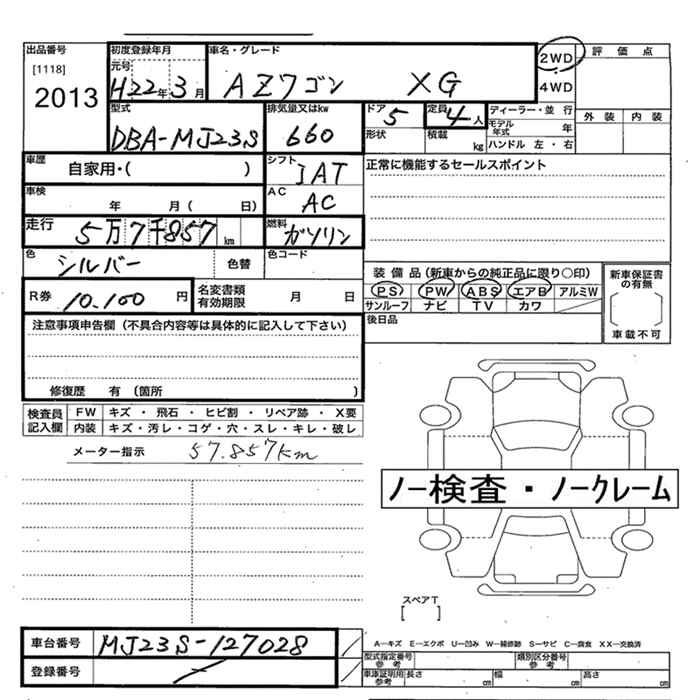 出品番号 初度登録年月 車名・グレード 2WD 評価点
[1118] 元号
2013 H22年3月 AZワゴン XG 4WD
型式 排気量又はkw ドア 5 定員 4人 ディーラー・並行 外装 内装
DBA-MJ23S 660 形状 積載 kg モデル年式 年
ハンドル 左・右
車歴 自家用・( ) シフト IAT 正常に機能するセールスポイント
車検 年 月( 日) AC AC
走行 5万7千857km 燃料 ガソリン
色 シルバー 色替 色コード
装備品(新車からの純正品に限り○印) 新車保証書の有無
R券 10.100円 名変書類有効期限 月 日
PS PW ABS エアB アルミW
サンルーフ ナビ TV カワ
車載不可
注意事項申告欄(不具合内容等は具体的に記入して下さい) 後日品
修復歴 有(箇所 )
検査員記入欄 FW キズ・飛石・ヒビ割・リペア跡・X要
内装 キズ・汚レ・コゲ・穴・スレ・キレ・破レ
メーター指示 57.857km
ノー検査・ノークレーム
スペアT
[ ]
車台番号 MJ23S-127028
登録番号
A-キズ E-エクボ U-凹み W-補修跡 S-サビ C-腐食 XX-交換済
型式指定番号 参考 類別区分番号 参考
車庫証明用 参考 長さ cm 幅 cm 高さ cm